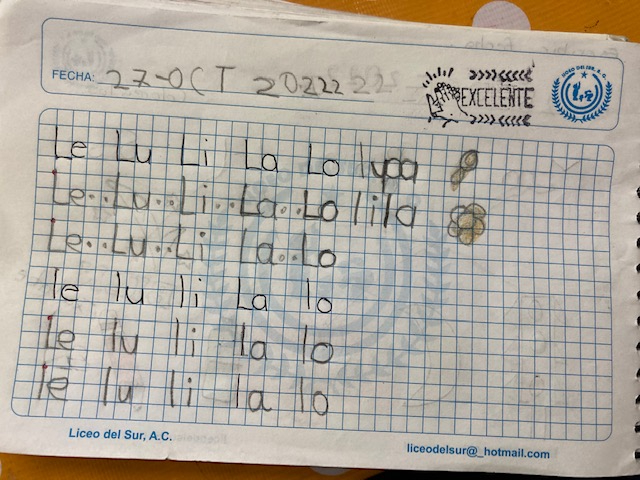 FECHA: 27-OCT 20222
EXCELENTE
LICEO DEL SUR, A.C.
Le Lu Li La Lo lupa
Le..Lu..Li..La..Lo lila
Le..Lu..Li La..Lo
le lu li La lo
Le lu li la lo
le lu li la lo
Liceo del Sur, A.C.
liceodelsur@_hotmail.com